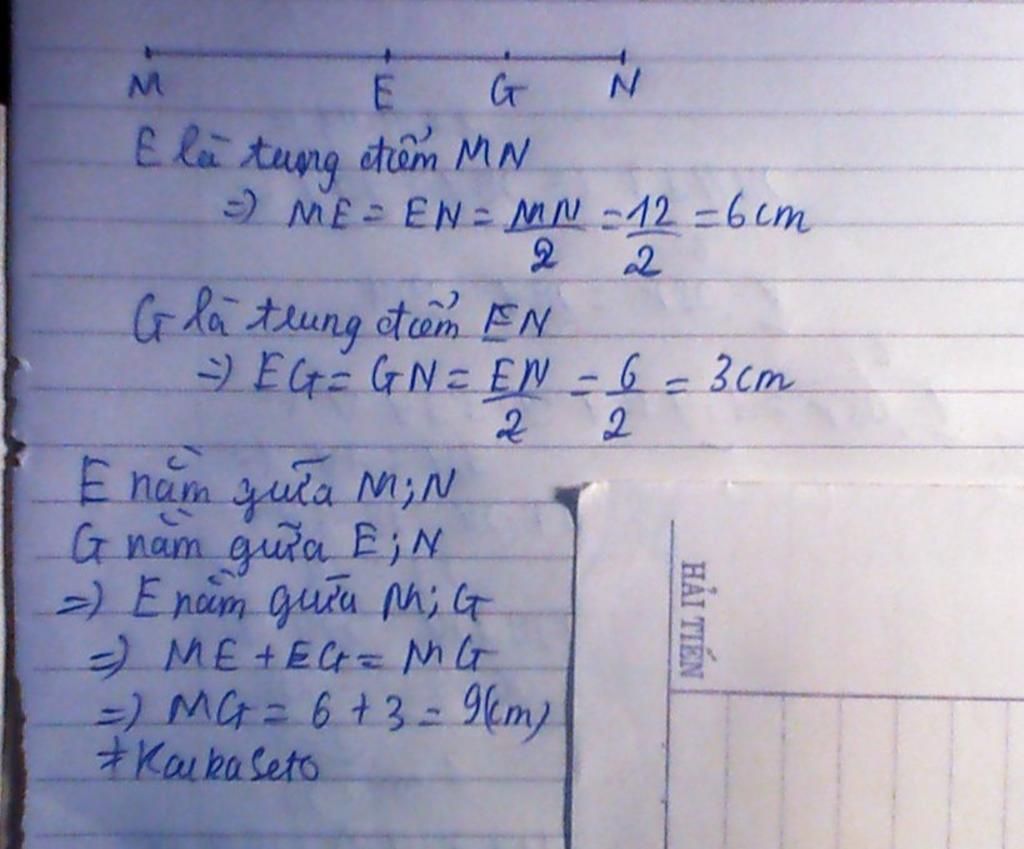 M E G N
E là trung điểm MN
=> ME = EN = MN/2 = 12/2 = 6cm
G là trung điểm EN
=> EG = GN = EN/2 = 6/2 = 3cm
E nằm giữa M; N
G nằm giữa E; N
=> E nằm giữa M; G
=> ME + EG = MG
=> MG = 6 + 3 = 9(cm)
#KaibaSeto
HẢI TIẾN